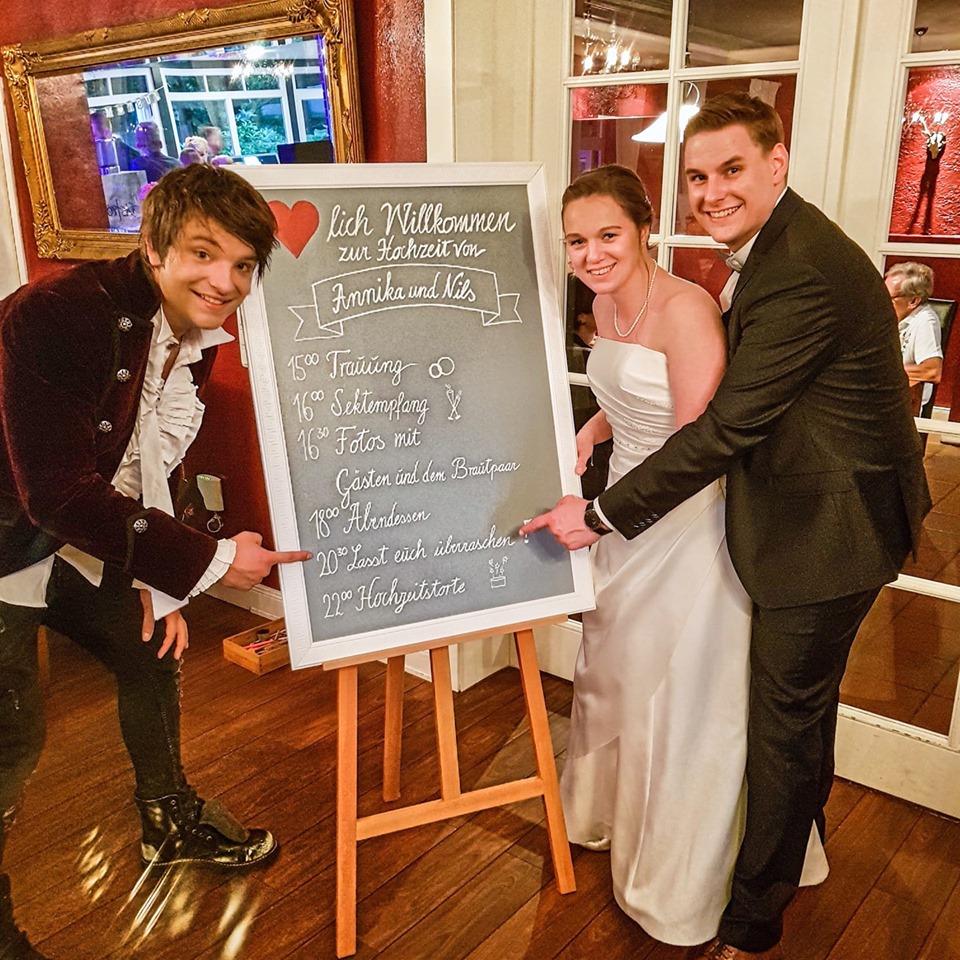 lich Willkommen
zur Hochzeit von
Annika und Nils
15⁰⁰ Trauung
16⁰⁰ Sektempfang
16³⁰ Fotos mit
Gästen und dem Brautpaar
18⁰⁰ Abendessen
20³⁰ Lasst euch überraschen !
22⁰⁰ Hochzeitstorte